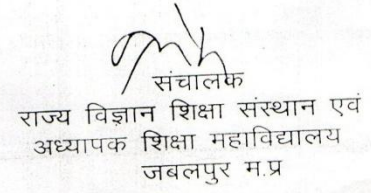 संचालक
राज्य विज्ञान शिक्षा संस्थान एवं
अध्यापक शिक्षा महाविद्यालय
जबलपुर म.प्र